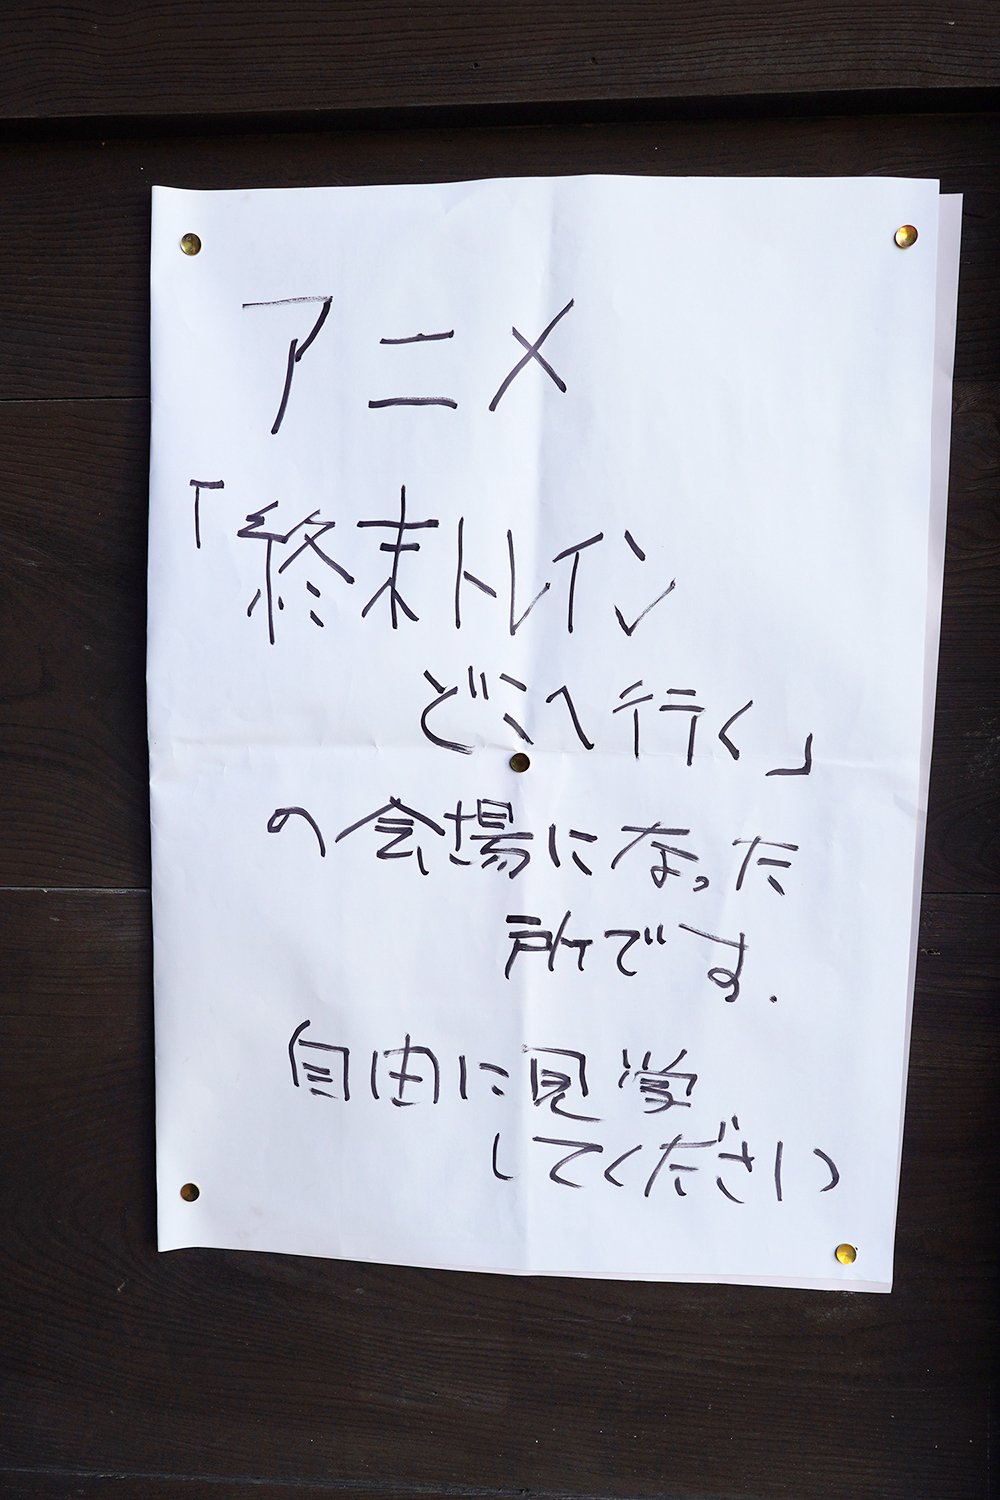 アニメ
「終末トレイン
どこへ行く」
の会場になった
所です.
自由に見学
してください